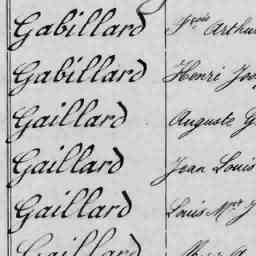 Gabillard fcois Arthu
Gabillard Henri Jos
Gaillard Auguste G
Gaillard Jean Louis
Gaillard Louis Mie J
Gaillard